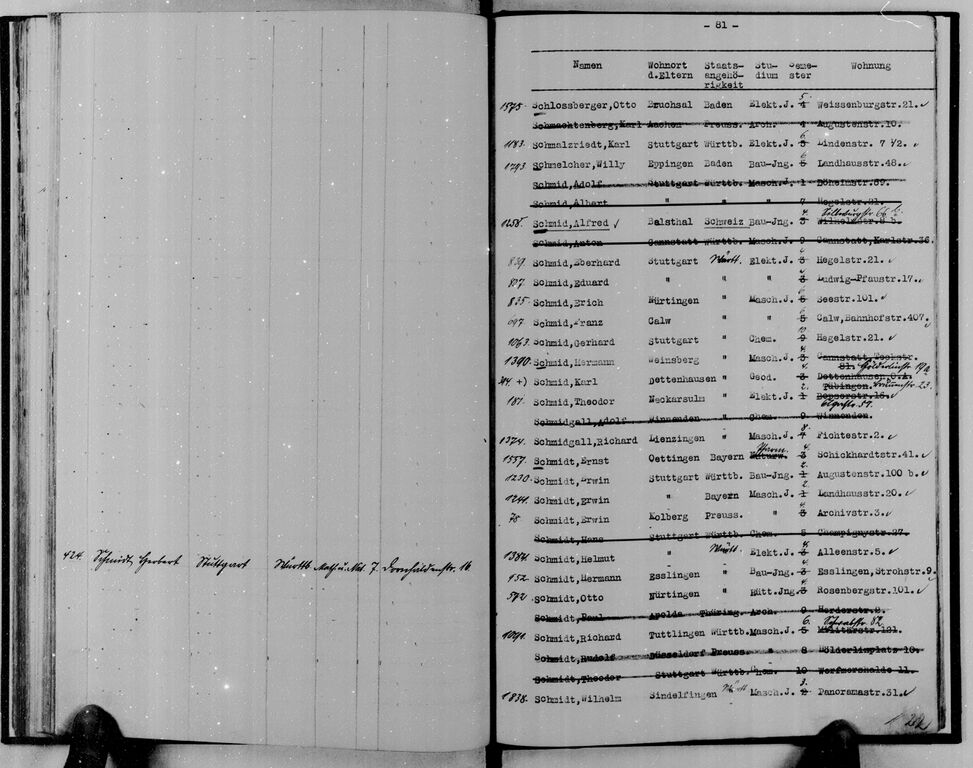 424. Schmidt, Herbert Stuttgart Württb. Math u. Nat. 7. Dornhaldenstr. 16
- 81 -
Namen Wohnort Staats- Stu- Seme- Wohnung
d.Eltern angehö- dium ster
rigkeit
1575. Schlossberger, Otto Bruchsal Baden Elekt.J. 4 5. Weissenburgstr.21.
Schmachtenberg, Karl Aachen Preuss. Arch. 4 Augustenstr.10.
1183. Schmalzriedt, Karl Stuttgart Württb. Elekt.J. 5 6. Lindenstr. 7 1/2.
1793. Schmelcher, Willy Eppingen Baden Bau-Jng. 5 6. Landhausstr.48.
Schmid, Adolf Stuttgart Württb. Masch.J. 1 Böheimstr.69.
Schmid, Albert " " " 7 Hegelstr.21.
1258. Schmid, Alfred Balsthal Schweiz Bau-Jng. 3 4. Wilhelmstr.8 b.
Schmid, Anton Cannstatt Württb. Masch.J. 9 Cannstatt, Karlstr.36.
839. Schmid, Eberhard Stuttgart Württ. Elekt.J. 3 Hegelstr.21.
807. Schmid, Eduard " " " 3 Ludwig-Pfaustr.17.
835. Schmid, Erich Nürtingen " Masch.J. 5 6. Seestr.101.
697. Schmid, Franz Calw " " 5 6. Calw, Bahnhofstr.407.
1063. Schmid, Gerhard Stuttgart " Chem. 9 10. Hegelstr.21.
1390. Schmid, Hermann Weinsberg " Masch.J. 3 4. Cannstatt, Teckstr.
81.
+) Schmid, Karl Dettenhausen " Geod. 3 4. Dettenhausen, O.A.
Tübingen.
187. Schmid, Theodor Neckarsulm " Elekt.J. 1 2. Dopserstr.18.
Olgastr. 57.
Schmidgall, Adolf Winnenden " Chem. 9 Winnenden.
1374. Schmidgall, Richard Lienzingen " Masch.J. 4 8. Fichtestr.2.
1557. Schmidt, Ernst Oettingen Bayern Naturw. 3 4. Schickhardtstr.41.
1230. Schmidt, Erwin Stuttgart Württb. Bau-Jng. 1 2. Augustenstr.100 b.
1241. Schmidt, Erwin " Bayern Masch.J. 1 2. Landhausstr.20.
78. Schmidt, Erwin Kolberg Preuss. " 3 4. Archivstr.3.
Schmidt, Hans Stuttgart Württb. Chem. 5 Champignystr.27.
1384. Schmidt, Helmut " Württ. Elekt.J. 3 4. Alleenstr.5.
452. Schmidt, Hermann Esslingen " Bau-Jng. 3 4. Esslingen, Strohstr.9.
592. Schmidt, Otto Nürtingen " Hütt.Jng. 3 4. Rosenbergstr.101.
Schmidt, Paul Apolda Thüring. Arch. 9 Herderstr.8.
1091. Schmidt, Richard Tuttlingen Württb. Masch.J. 5 6. Militärstr.121.
Schwabstr. 82
Schmidt, Rudolf Düsseldorf Preuss. " 8 Hölderlinplatz 10.
Schmidt, Theodor Stuttgart Württb. Chem. 10 Werfmershalde 11.
1838. Schmidt, Wilhelm Sindelfingen Württ Masch.J. 2 3. Panoramastr.31.